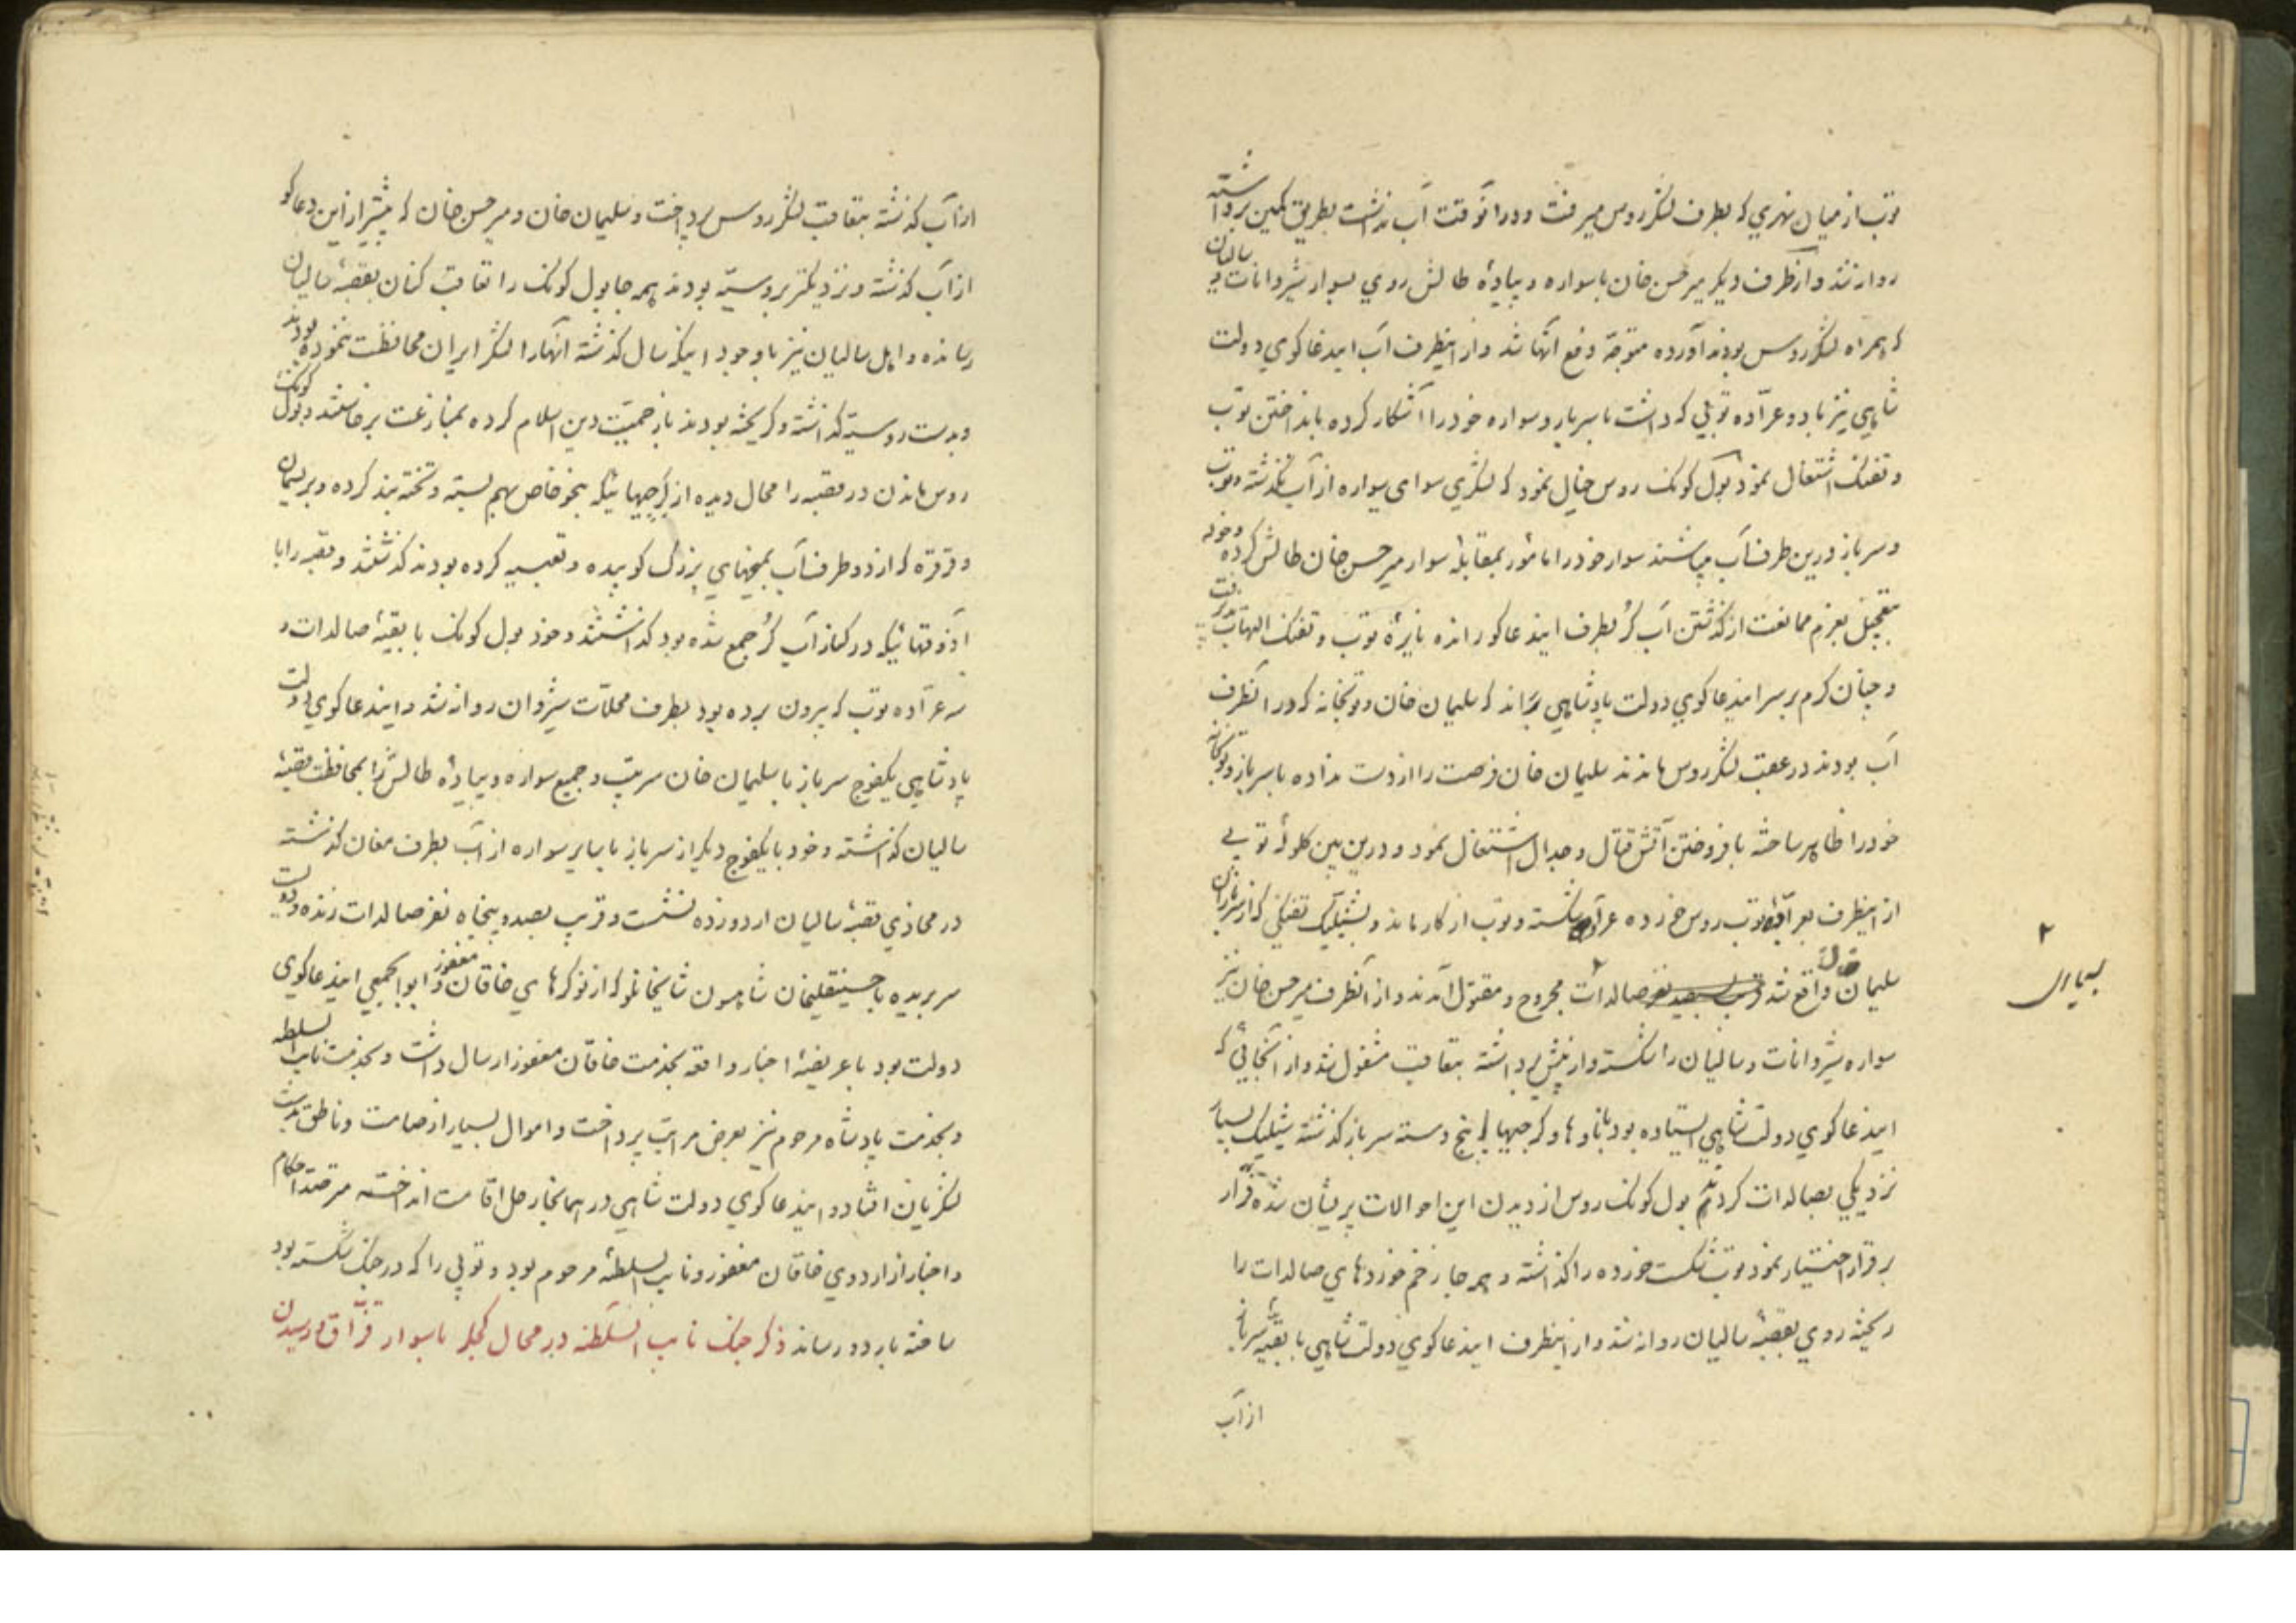 توپ از میان نهری که بطرف لشکر روس میرفت و در آنوقت آب نداشت بطریق کمین برداشته
روانه شد و از آنطرف دیگر میرحسن خان با سواره و پیادهٔ طالش روی بسوار شیروانات و سالیان
که همراه لشکر روس بودند آورده متوجّه دفع آنها شد و از اینطرف آب ایندعاکوی دولت
شاهی نیز با دو عرّاده توپی که داشت با سرباز و سواره خود را آشکار کرده بانداختن توپ
و تفنک اشتغال نمود پول کونک روس خیال نمود که لشکری سوای سواره از آب نگذشته و توپ
و سرباز درین طرف آب میباشند سوار خود را مامور بمقابلهٔ سوار میرحسن خان طالش کرده و خود
بتعجیل بعزم ممانعت از گذشتن آب کُر بطرف ایندعاکو رانده نایرهٔ توپ و تفنک التهاب گرفت
و چنان گرم بر سر ایندعاکوی دولت پادشاهی براند که سلیمان خان و توپخانه که در آنطرف
آب بودند در عقب لشکر روس ماندند سلیمان خان فرصت را از دست نداده با سرباز و توپخانه
خود را ظاهر ساخته بافروختن آتش قتال و جدال اشتغال نمود و درین بین کلولهٔ توپی
از اینطرف بعرّادهٔ توپ روس خورده عرّاده شکسته و توپ از کار ماند و بشلیک تفنکی که از سربازان
سلیمان خان واقع شد قریب بسیصد نفر صالدات مجروح و مقتول آمدند و از آنطرف میرحسن خان نیز
۲
بسیاری
سواره شیروانات و سالیان را شکسته و از پیش برداشته بتعاقب مشغول شد و از آنجائی که
ایندعاکوی دولت شاهی ایستاده بود با ناوها و کرجیها پنج دسته سرباز گذشته شلیک بسیار
نزدیکی بصالدات کردند پول کونک روس از دیدن این احوالات پریشان شده فرار
بر قرار اختیار نمود توپ شکست خورده را گذاشته و همه جا زخم خوردهای صالدات را
ریخته روی بقصبهٔ سالیان روانه شد و از اینطرف ایندعاکوی دولت شاهی با بقیّه سرباز
از آب
از آب گذشته بتعاقب لشکر روس پرداخت و سلیمان خان و میرحسن خان که پیشتر از این دعاکو
از آب گذشته و نزدیکتر بروسیّه بودند همه جا پول کونک را تعاقب کنان بقصبهٔ سالیان
رسانده و اهل سالیان نیز با وجود اینکه سال گذشته آنها را لشکر ایران محافظت ننموده بودند
و بدست روسیّه گذاشته و گریخته بودند باز حمیّت دین اسلام کرده بمنازعت برخاستند و پول کونک
روس ماندن در قصبه را محال دیده از کرجیهائیکه بنحو خاص بهم بسته و تخته بند کرده و بریسمان
و قرقره که از دو طرف آب بمیخهای بزرگ کوبیده و تعبیه کرده بودند گذشتند و قصبه را با
آذوقهائیکه در کنار آب کُر جمع شده بود گذاشتند و خود پول کونک با بقیّهٔ صالدات و
سه عرّاده توپ که بیرون برده بود بطرف محلّات شیروان روانه شد و ایندعاکوی دولت
پادشاهی یکفوج سرباز با سلیمان خان سرتیپ و جمیع سواره و پیادهٔ طالش را بمحافظت قصبهٔ
سالیان گذاشته و خود با یکفوج دیگر از سرباز با سایر سواره از آب بطرف مغان گذشته
در محاذی قصبهٔ سالیان اردو زده نشست و قریب بصد و پنجاه نفر صالدات زنده و دویست
سر بریده با حسینقلیخان شاهسون شایخانلو که از نوکرهای خاقان مغفور و ابوابجمعی ایندعاکوی
دولت بود با عریضهٔ اخبار واقعه بخدمت خاقان مغفور ارسال داشت و بخدمت نایب السلطنه
و بخدمت پادشاه مرحوم نیز بعرض مراتب پرداخت و اموال بسیار از صامت و ناطق بدست
لشکریان افتاد و ایندعاکوی دولت شاهی در همانجا رحل اقامت انداخته مترصّد احکام
و اخبار از اردوی خاقان مغفور و نایب السلطنهٔ مرحوم بود و توپی را که در جنک شکسته بود
ساخته باردو رساند ذکر جنک نایب السّلطنه در محال کجلر با سوار قزّاق و رسیدن